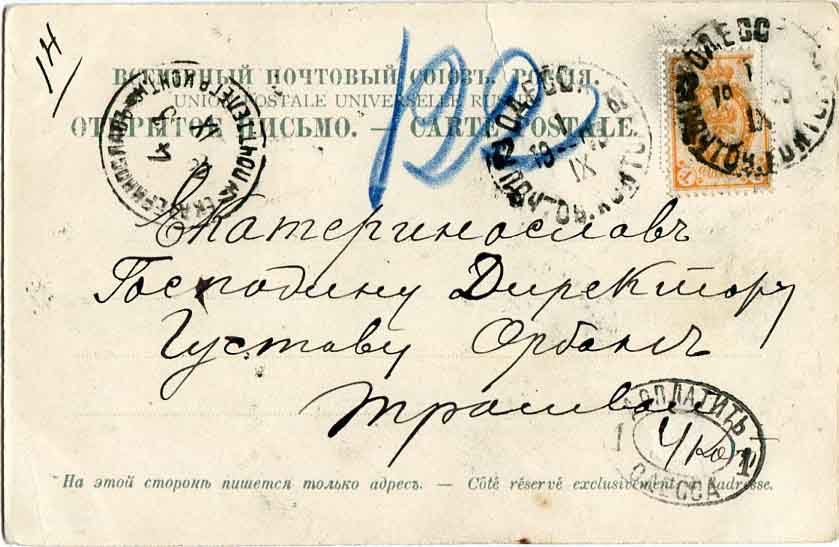 ВСЕМIРНЫЙ ПОЧТОВЫЙ СОЮЗЪ. РОССIЯ.
UNION POSTALE UNIVERSELLE RUSSIE
ОТКРЫТОЕ ПИСЬМО. — CARTE POSTALE.
ОДЕССА
IX
ОДЕСС
IX
Екатеринославъ
Господину Директору
Густаву Орбанъ
трамвай
ДОПЛАТИТЬ
1 4 ко 1
ОДЕССА
На этой сторонѣ пишется только адресъ. — Côté réservé exclusivement à l'adresse.